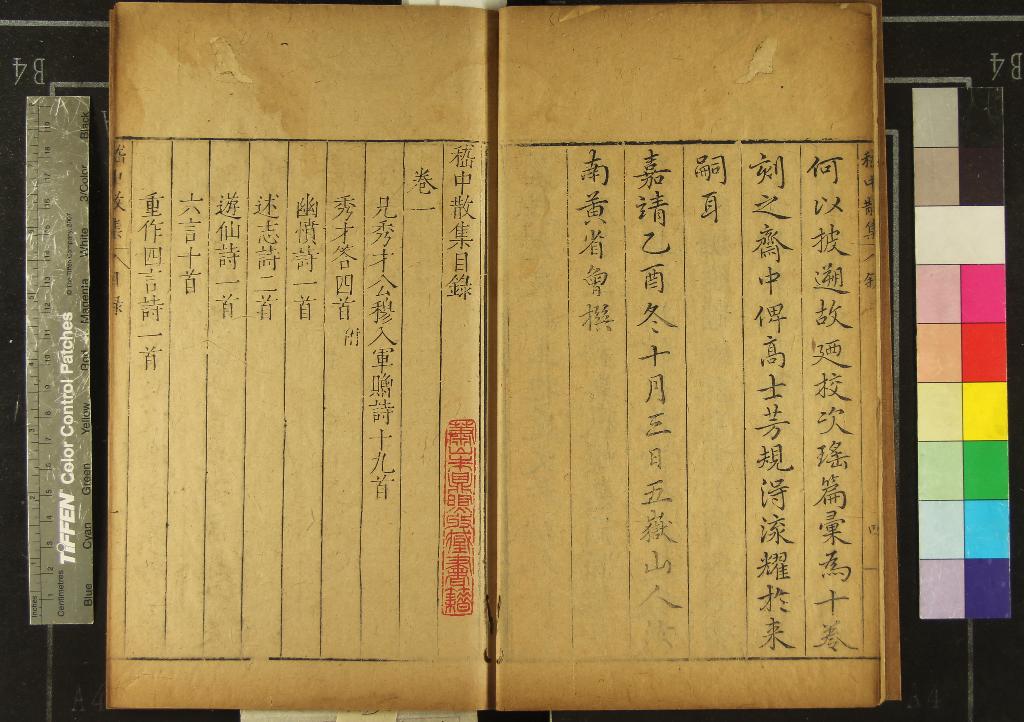 何以披遡故廼挍次瑤篇彙為十卷
刻之齋中俾高士芳規淂流耀於来
嗣耳
嘉靖乙酉冬十月三日五嶽山人汝
南黃省曾撰
嵇中散集目錄
卷一
兄秀才公穆入軍贈詩十九首
秀才答四首 附
幽憤詩一首
述志詩二首
遊仙詩一首
六言十首
重作四言詩一首
B4
B4
TIFFEN Color Control Patches
© The Tiffen Company, 2007
Inches
Centimetres
Blue
Cyan
Green
Yellow
Red
Magenta
White
3/Color
Black